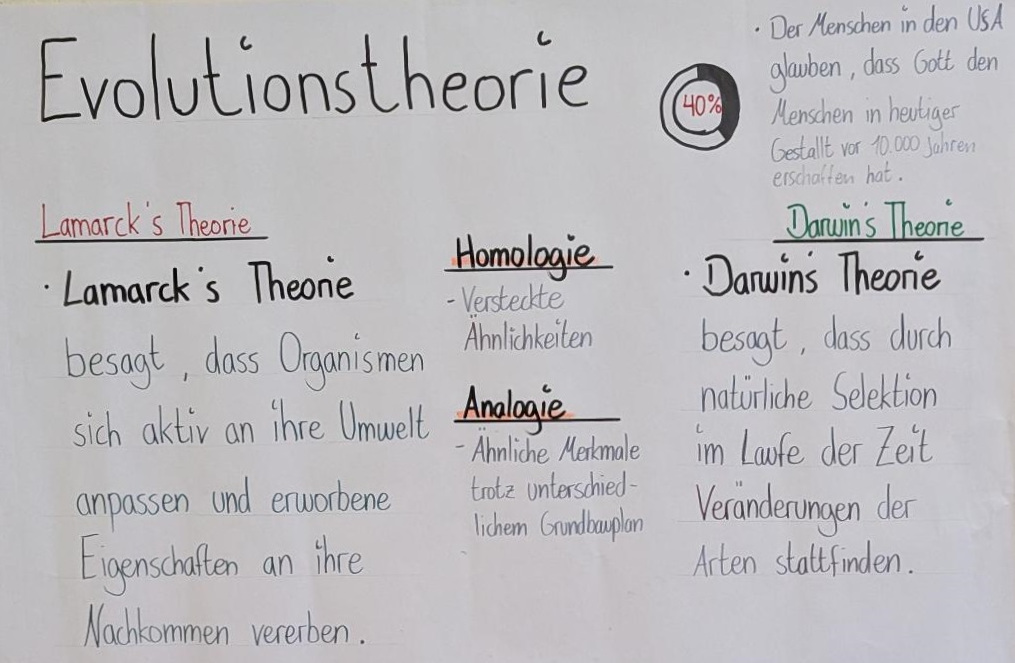 Evolutionstheorie
40%
· Der Menschen in den USA
glauben, dass Gott den
Menschen in heutiger
Gestallt vor 10.000 Jahren
erschaffen hat.
Lamarck's Theorie
· Lamarck's Theorie
besagt, dass Organismen
sich aktiv an ihre Umwelt
anpassen und erworbene
Eigenschaften an ihre
Nachkommen vererben.
Homologie
- Versteckte
Ähnlichkeiten
Analogie
- Ähnliche Merkmale
trotz unterschied-
lichem Grundbauplan
Darwin's Theorie
· Darwin's Theorie
besagt, dass durch
natürliche Selektion
im Laufe der Zeit
Veränderungen der
Arten stattfinden.